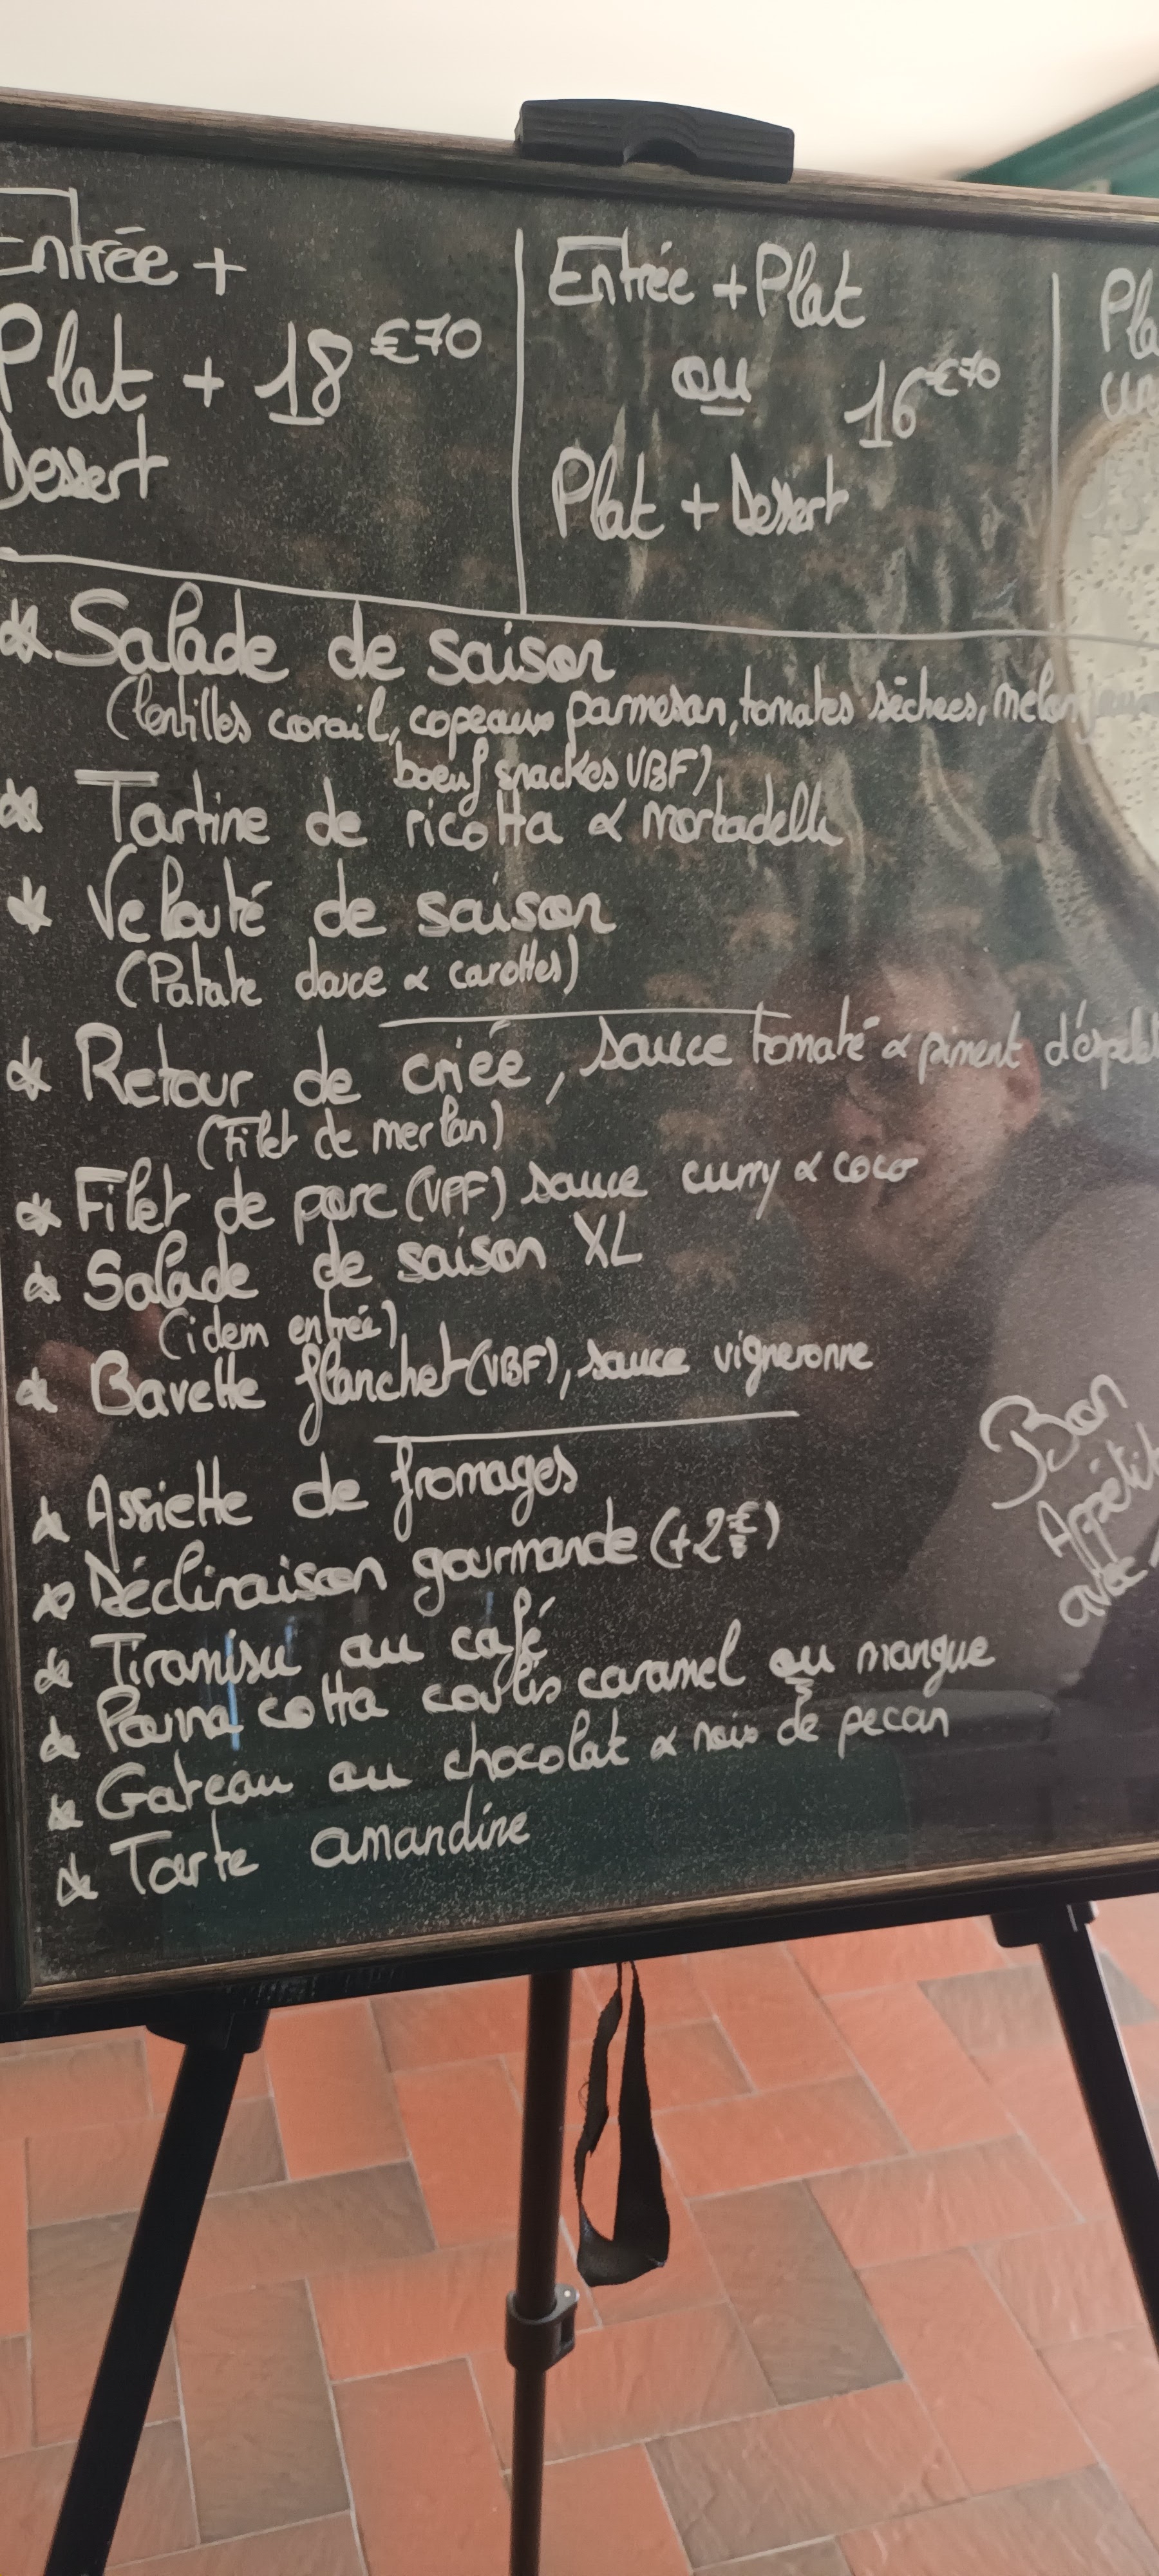 Entrée +
Plat + 18€70
Dessert
Entrée + Plat
ou 16€70
Plat + Dessert
Salade de saison
(lentilles corail, copeaux parmesan, tomates séchées, melon
boeuf snackés VBF)
Tartine de ricotta & mortadelle
Velouté de saison
(Patate douce & carottes)
Retour de criée, sauce tomate & piment d'espelette
(Filet de merlan)
Filet de porc (VPF) sauce curry & coco
Salade de saison XL
(idem entrée)
Bavette flanchet (VBF), sauce vigneronne
Assiette de fromages
Déclinaison gourmande (+2€)
Tiramisu au café
Panna cotta coulis caramel ou mangue
Gateau au chocolat & noix de pecan
Tarte amandine
Bon
Appétit
avec